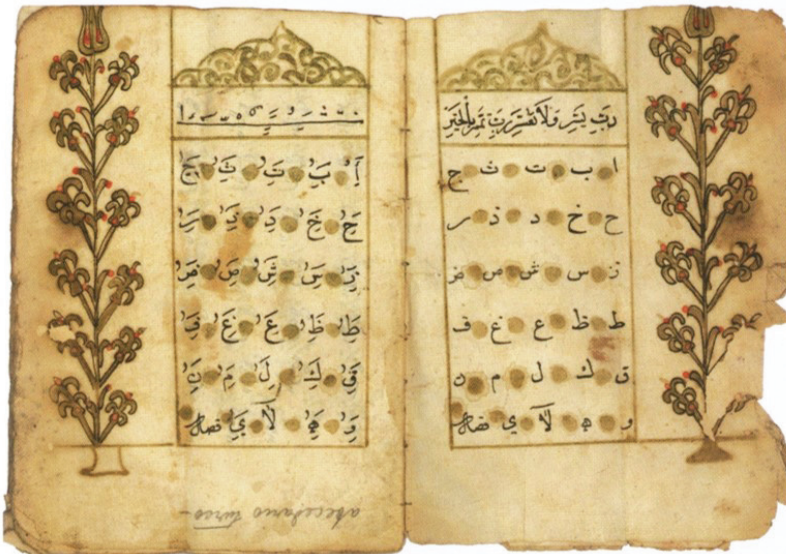 رَبِّ يَسِّرْ وَلَا تُعَسِّرْ رَبِّ تَمِّمْ بِالْخَيْرِ
ا ب ت ث ج
ح خ د ذ ر
ز س ش ص ض
ط ظ ع غ ف
ق ك ل م ن
و ه لا ي
ا ب ت ث ج
ح خ د ذ ر
ز س ش ص ض
ط ظ ع غ ف
ق ك ل م ن
و ه لا ي
abecedario turco -